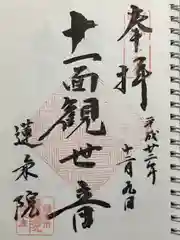 奉拝
平成廿二年
十二月九日
十一面観世音
蓮乗院